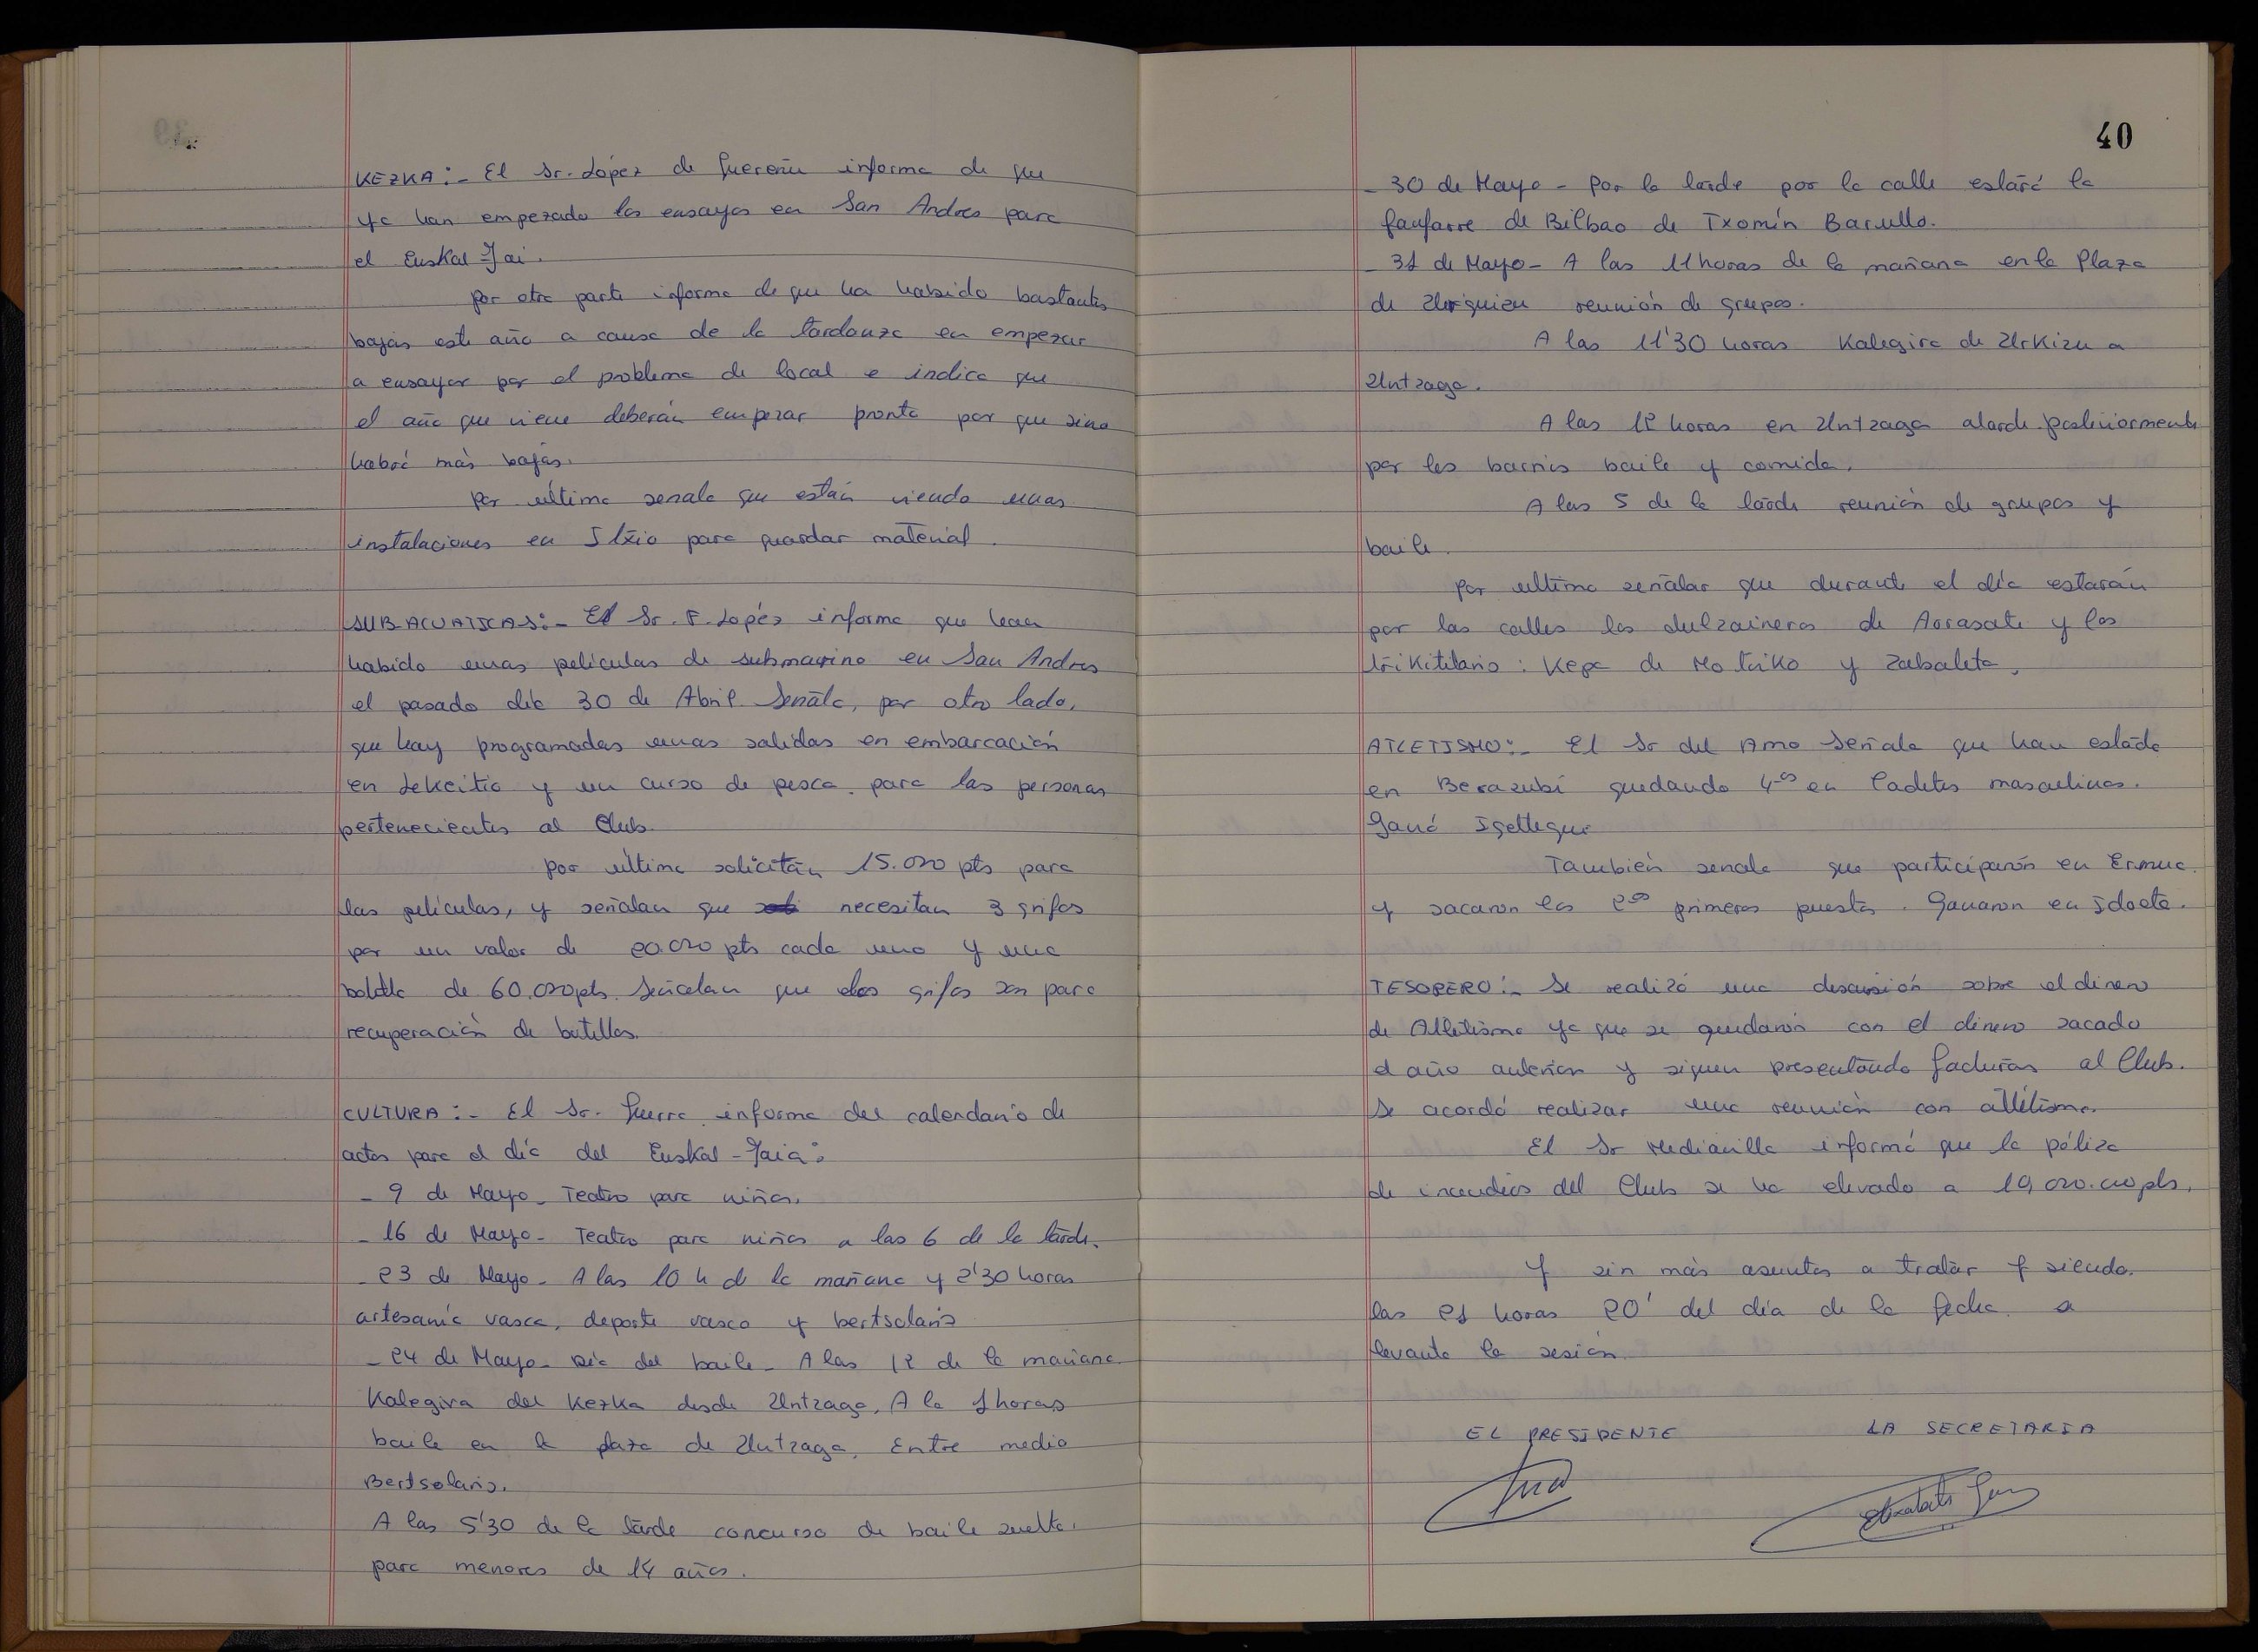 KEZKA:- El Sr. López de Guereñu informa de que
ya han empezado los ensayos en San Andres para
el Euskal-Jai.
Por otra parte informa de que ha habido bastantes
bajas este año a causa de la tardanza en empezar
a ensayar por el problema de local e indica que
el año que viene deberán empezar pronto por que sino
habrá más bajas.
Por última senala que están viendo unas
instalaciones en Itxio para guardar material.
SUB-ACUATICAS:- El Sr. F. Lopés informa que han
habido unas películas de submarino en San Andres
el pasado día 30 de Abril. Senãla, por otro lado,
que hay programadas unas salidas en embarcación
en Lekeitio y un curso de pesca para las personas
pertenecientes al Club.
Por última solicitán 15.000 pts para
las películas, y señalan que necesitan 3 grifos
por un valor de 20.000 pts cada uno y una
botella de 60.000 pts. Señalan que dos grifos son para
recuperación de botellas.
CULTURA:- El Sr. Guerra informa del calendario de
actos para el día del Euskal-Jaia:
- 9 de Mayo- Teatro para niños.
- 16 de Mayo- Teatro para niños a las 6 de la tarde.
- 23 de Mayo- A las 10 h de la mañana y 2'30 horas
artesanía vasca, deporte vasco y bertsolaris
- 24 de Mayo- Día del baile- A las 12 de la mañana
Kalegira del Kezka desde Untzaga, A la 1 horas
baile en la plaza de Untzaga. Entre medio
Bertsolaris.
A las 5'30 de la tarde concurso de baile suelto.
para menores de 14 años.
40
- 30 de Mayo- Por la tarde por la calle estará la
fanfarre de Bilbao de Txomín Barullo.
- 31 de Mayo- A las 11 horas de la mañana en la Plaza
de Urquizu reunión de grupos.
A las 11'30 horas Kalegira de Urkizu a
Untzaga.
A las 12 horas en Untzaga alarde posteriormente
por los barrios baile y comida.
A las 5 de la tarde reunión de grupos y
baile.
Por ultimo señalar que durante el día estarán
por las calles los dulzaineros de Arrasate y los
trikitilaris: Kepa de Motriko y Zabaleta.
ATLETISMO:- El Sr del Amo Señala que han estado
en Berazubi quedando 4os en Cadetes masculinos.
Ganó Igeltegui
También senala que participarón en Ermua
y sacaron los 2os primeros puestos. Ganaron en Idoeta.
TESORERO:- Se realizó una discusión sobre el dinero
de Atletismo ya que se quedarón con el dinero sacado
el año anterior y siguen presentando facturas al Club.
Se acordó realizar una reunión con atletismo.
El Sr Mediavilla informó que la póliza
de incendios del Club se ha elevado a 19.000.000 pts.
Y sin más asuntos a tratar y siendo
las 21 horas 20' del día de la fecha se
levanta la sesión.
EL PRESIDENTE LA SECRETARIA